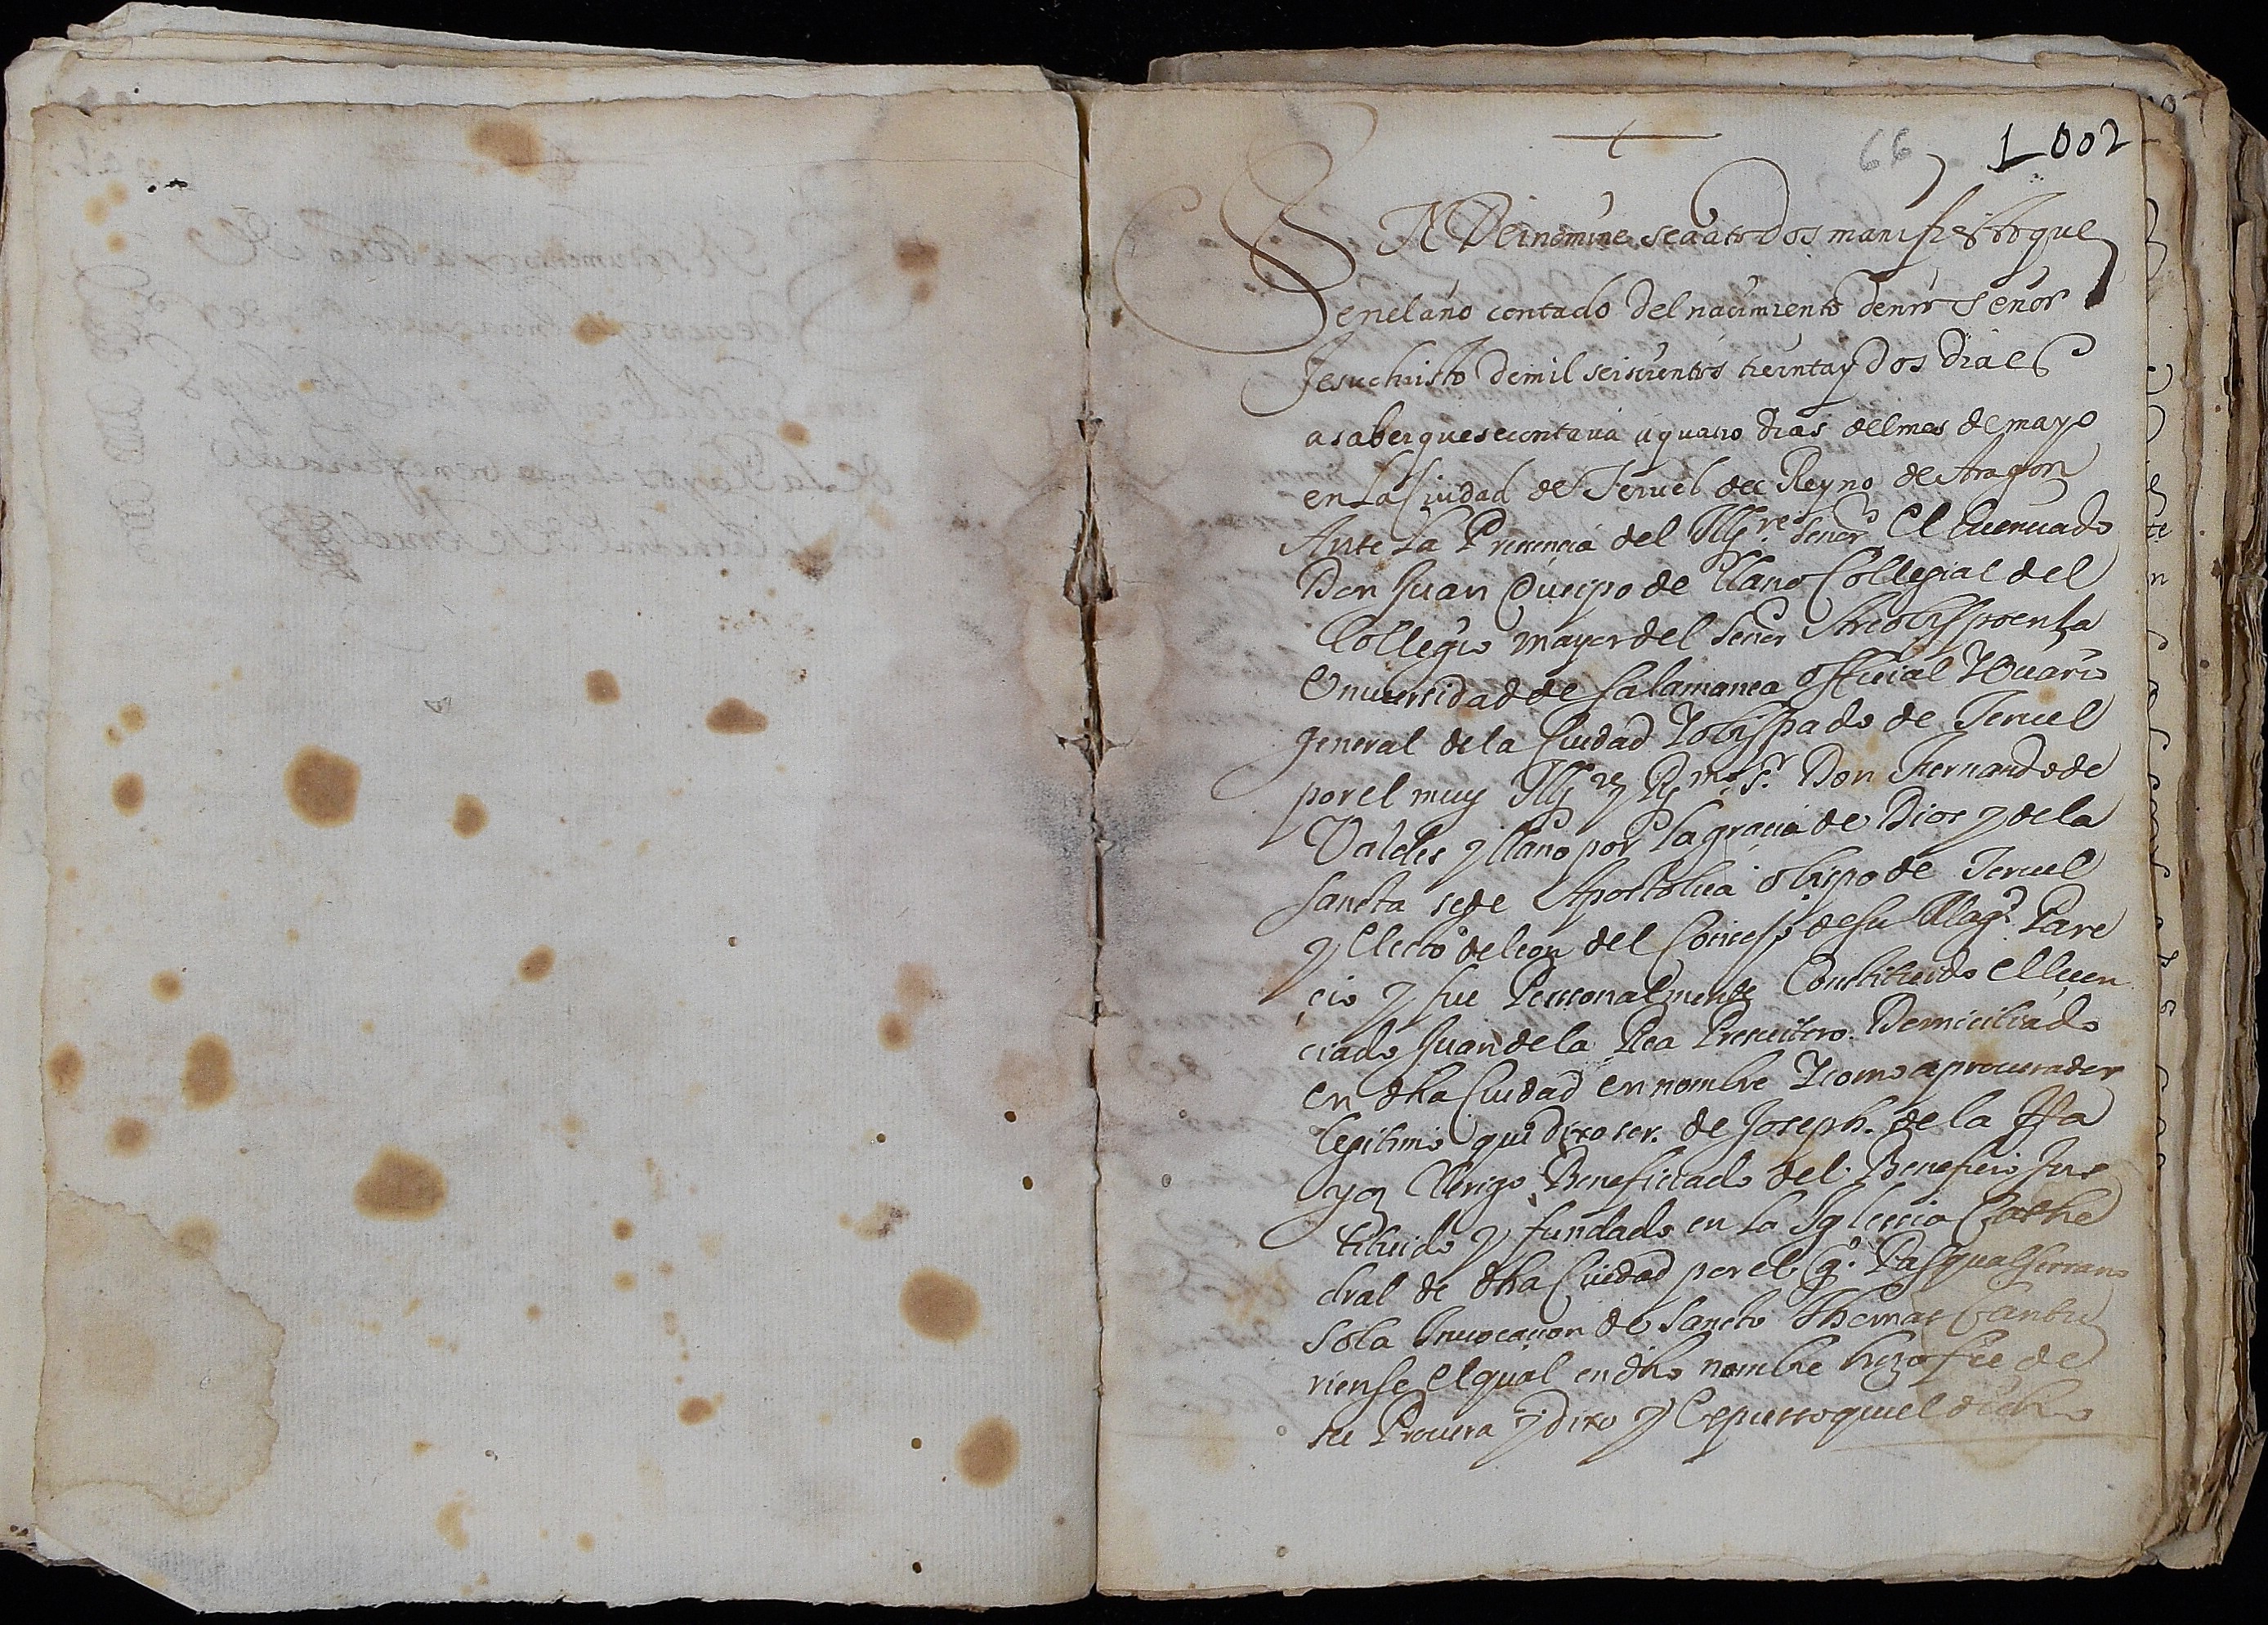 66 1002
IN Dei nomine sea a todos manifiesto que
en el año contado del nacimiento de nro señor
Jesuchristo de mil seiscientos treinta y dos dia es
a saber que se contava a quatro dias del mes de mayo
en la Ciudad de Teruel del Reyno de Aragon
Ante la Presencia del Illre. señor El licenciado
Don Juan Queipo de llano Collegial del
Collegio mayor del señor Arcobispo en la
Universidad de salamanca official y Vicario
general de la Ciudad y obispado de Teruel
por el muy Illre y Rmo. Sr. Don Fernando de
Valdes y llano por la gracia de Dios y de la
sancta sede Apostolica obispo de Teruel
y Electo de leon del Consejo de su Magd. Pare
cio y fue Personalmente Constituido el licen
ciado Juan de la Rea Presvitero Domiciliado
en dha Ciudad en nombre y como a procurador
legitimo que dixo ser de Joseph de la
Clerigo Beneficiado del Beneficio Ins
tituido y fundado en la Iglesia Cathe
dral de dha Ciudad por el qº. Pasqual serrano
so la Invocacion de sancto Thomas Cantu
riense el qual en dho nombre hizo fee de
su Procura y dixo y Propuso que el dicho